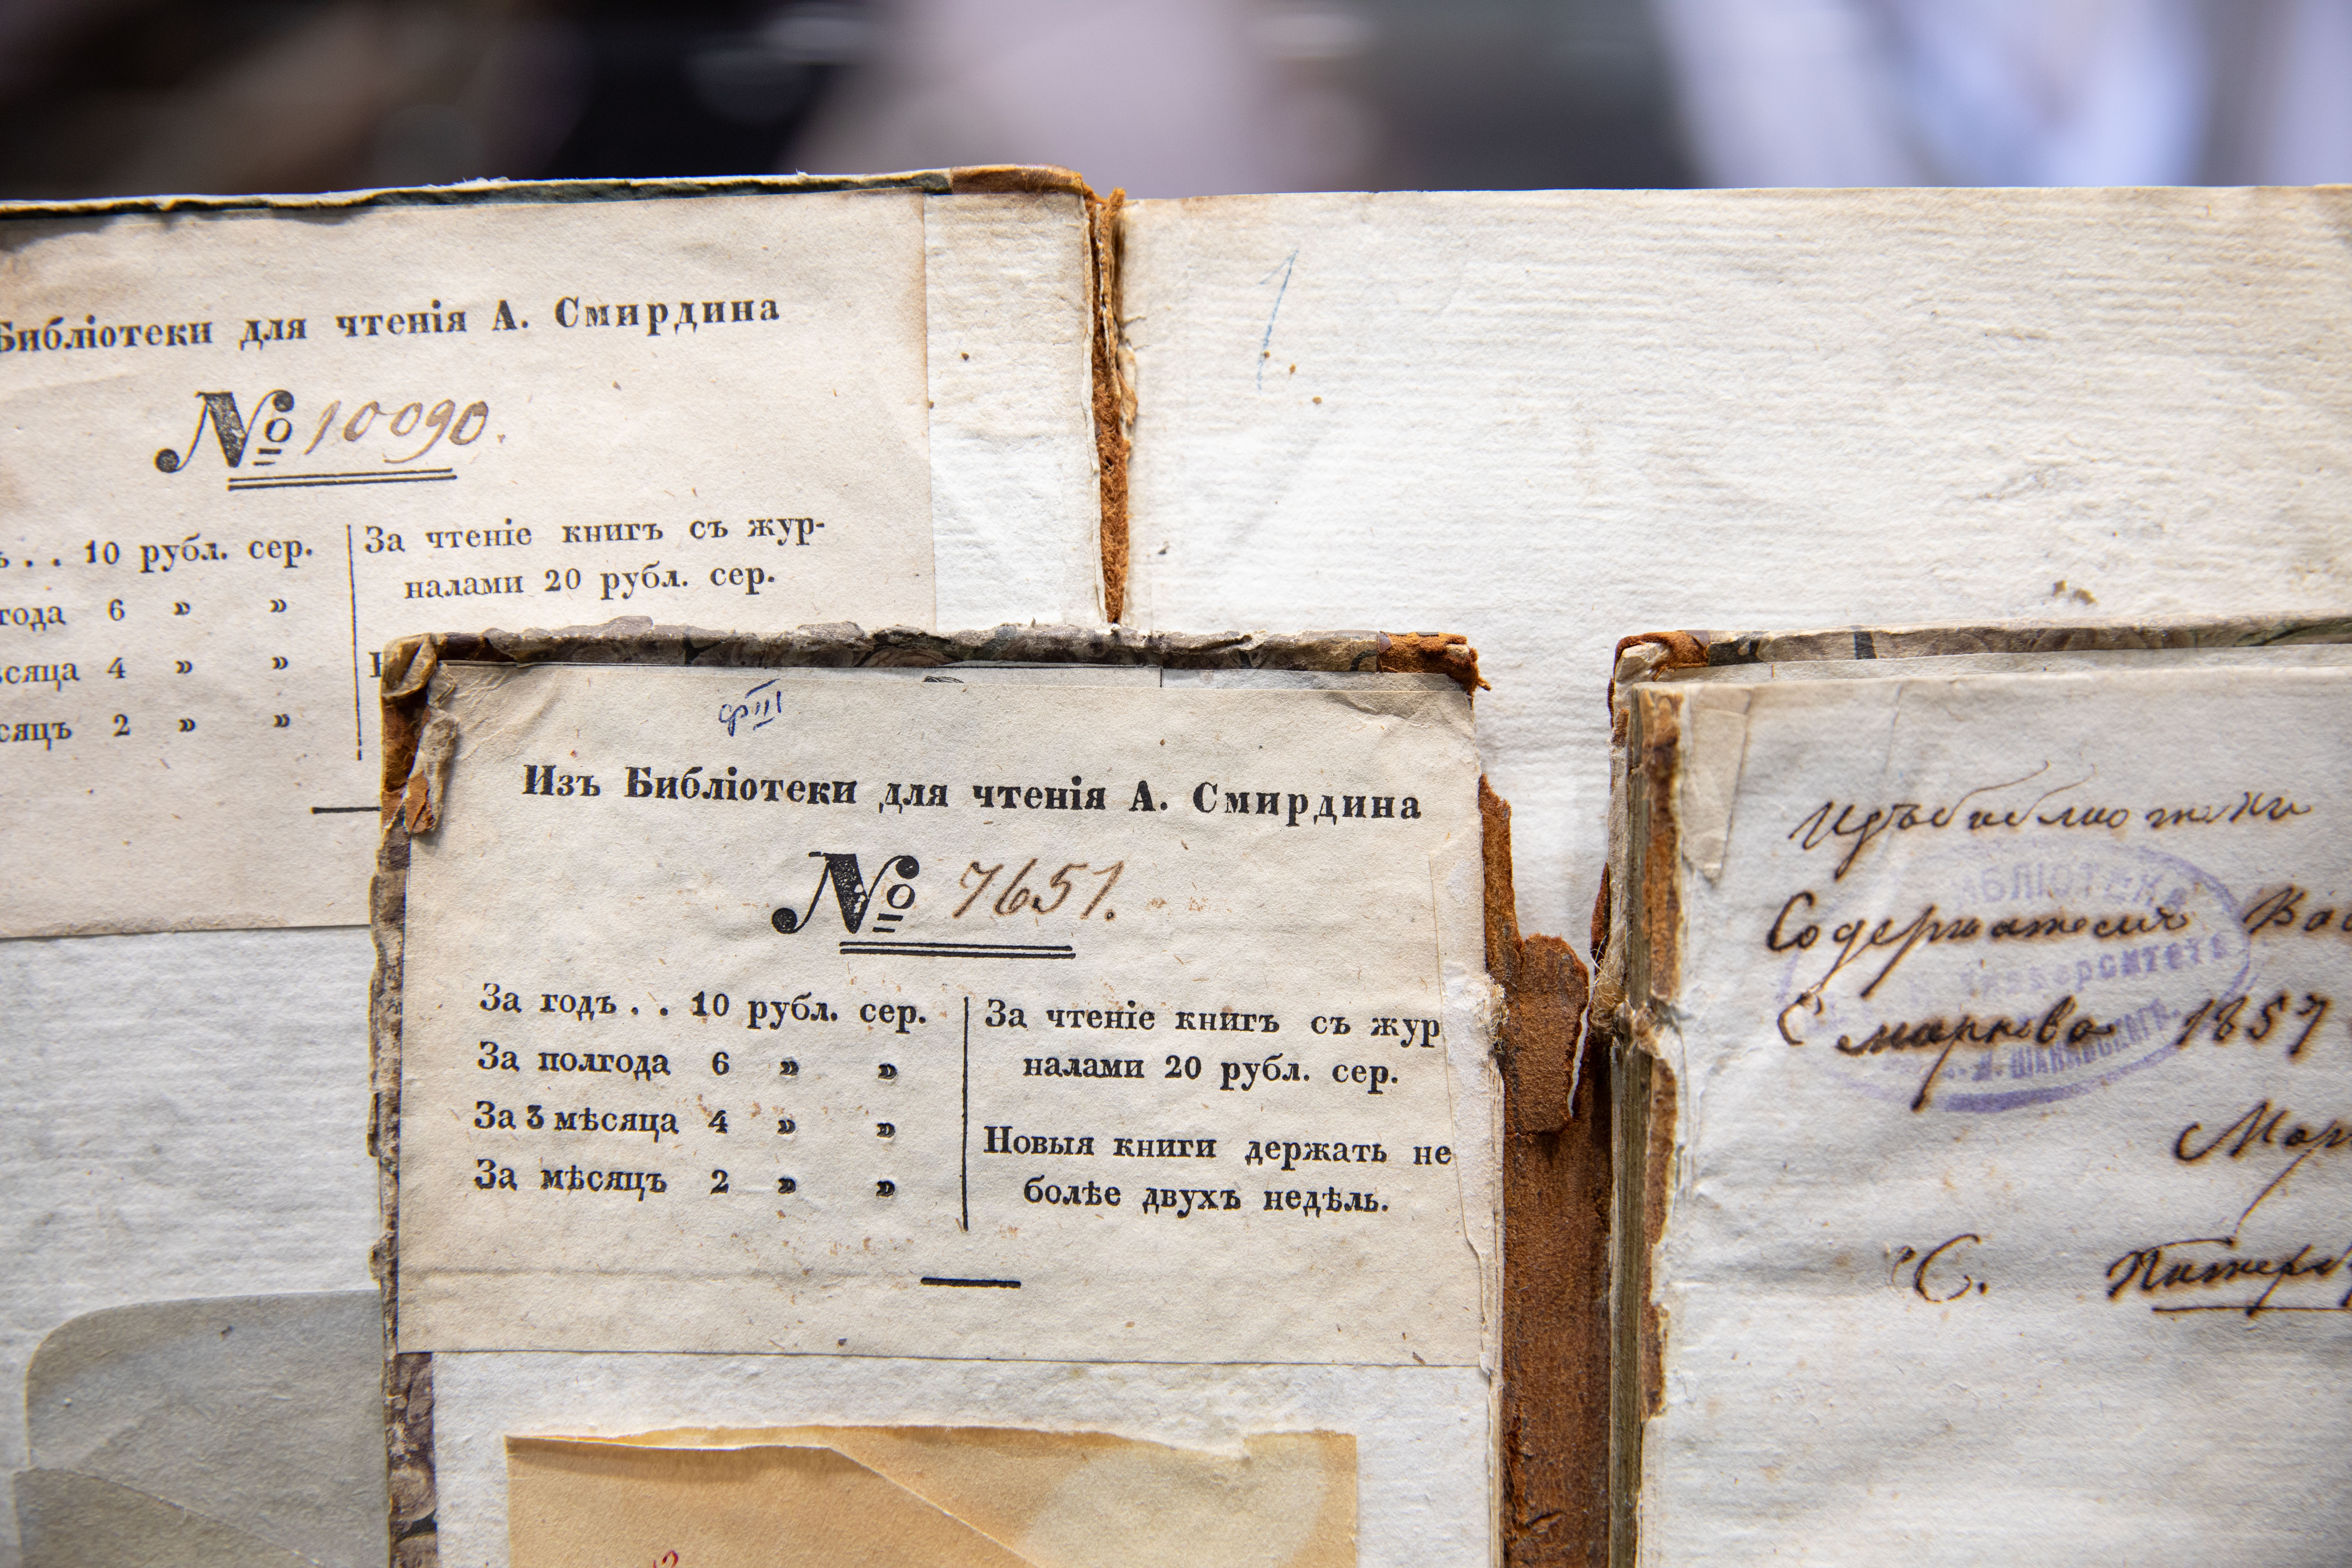 Библіотеки для чтенія А. Смирдина
№ 10090.
ъ . . 10 рубл. сер.
года 6 » »
сяца 4 » »
сяцъ 2 » »
За чтеніе книгъ съ жур-
налами 20 рубл. сер.
1
Изъ Библіотеки для чтенія А. Смирдина
№ 7651.
За годъ . . 10 рубл. сер.
За полгода 6 » »
За 3 мѣсяца 4 » »
За мѣсяцъ 2 » »
За чтеніе книгъ съ жур
налами 20 рубл. сер.
Новыя книги держать не
болѣе двухъ недѣль.
Изъ библиотеки
Содержателя Вас
Смаркова 1857
Мар
С. Питерб
БИБЛІОТЕКА
Университета